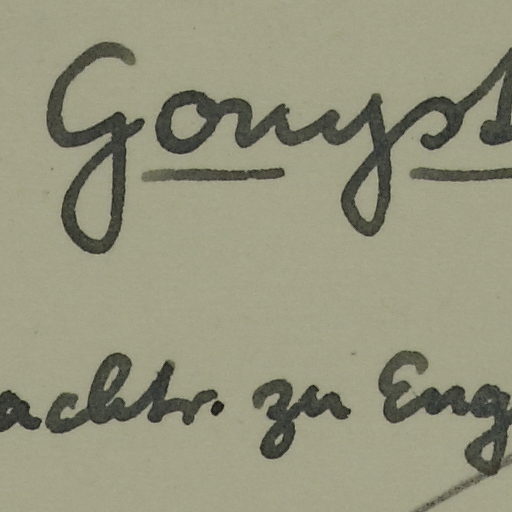 Gonyst
achtr. zu Eng